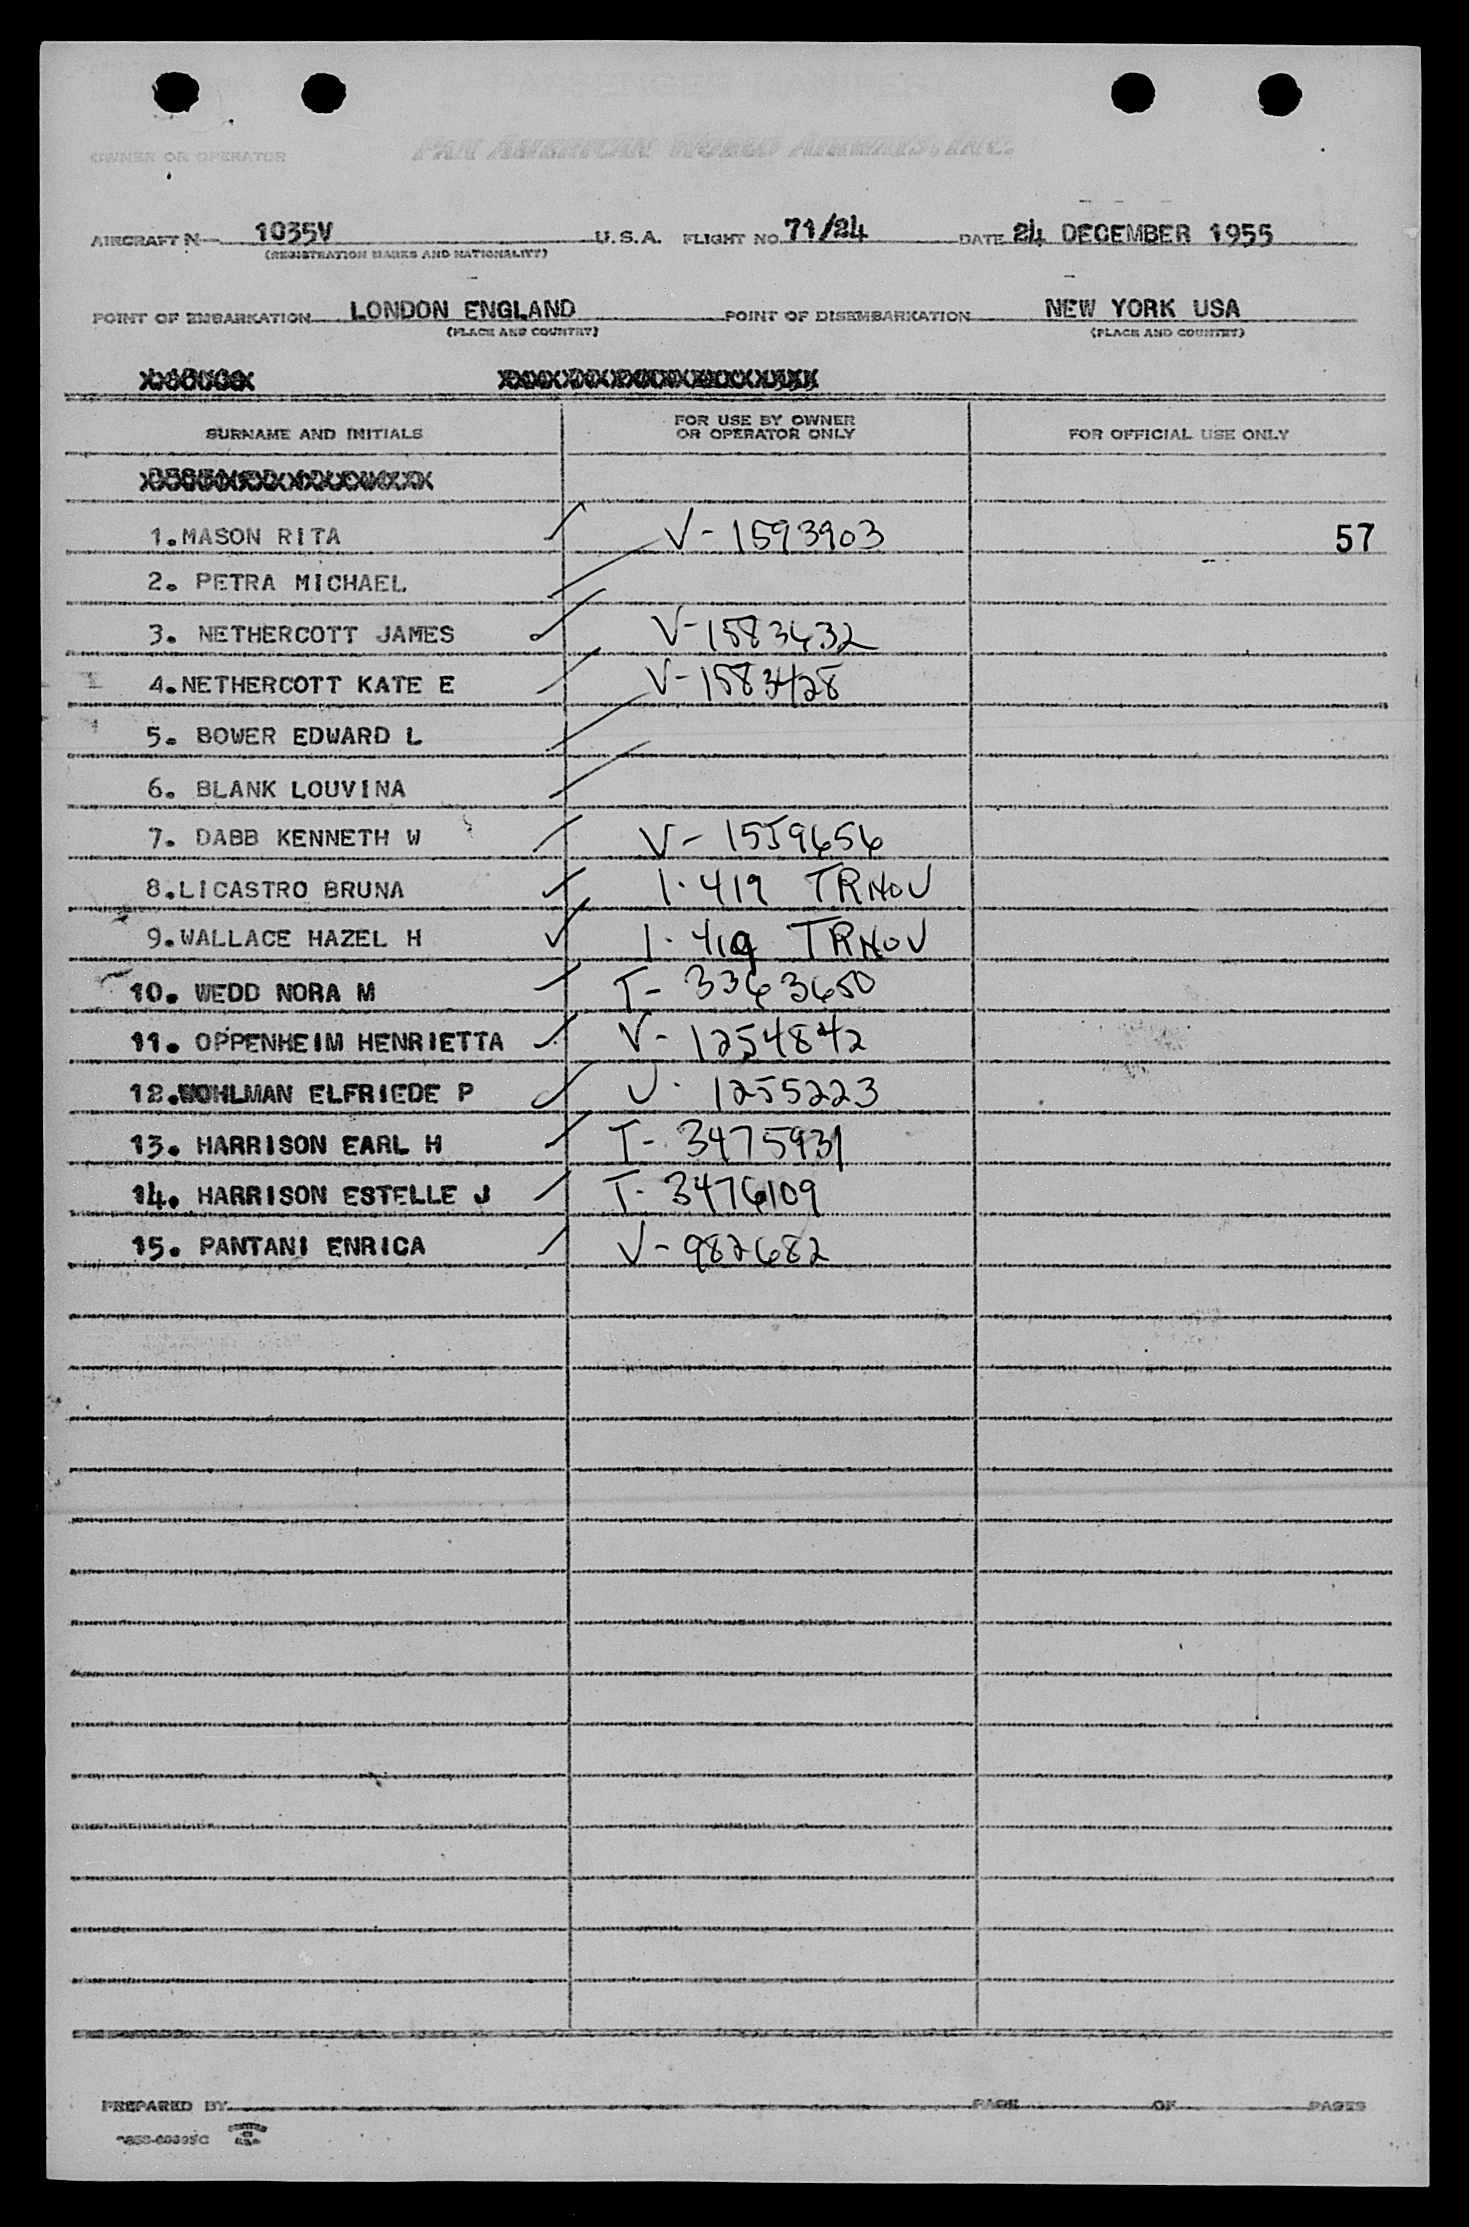 PAN AMERICAN WORLD AIRWAYS, INC.
OWNER OR OPERATOR
AIRCRAFT N 1035V U.S.A. FLIGHT NO. 71/24 DATE 24 DECEMBER 1955
(REGISTRATION MARKS AND NATIONALITY)
POINT OF EMBARKATION LONDON ENGLAND POINT OF DISEMBARKATION NEW YORK USA
(PLACE AND COUNTRY) (PLACE AND COUNTRY)
SURNAME AND INITIALS FOR USE BY OWNER OR OPERATOR ONLY FOR OFFICIAL USE ONLY
1.MASON RITA V-1593903 57
2. PETRA MICHAEL
3. NETHERCOTT JAMES V-1583432
4.NETHERCOTT KATE E V-1583428
5. BOWER EDWARD L
6. BLANK LOUVINA
7. DABB KENNETH W V-1559656
8.LICASTRO BRUNA 1.419 TRNOV
9.WALLACE HAZEL H 1.419 TRNOV
10. WEDD NORA M T-3363650
11. OPPENHEIM HENRIETTA V-1254842
12. ELFRIEDE P V. 1255223
13. HARRISON EARL H T-3475931
14. HARRISON ESTELLE J T-3476109
15. PANTANI ENRICA V-982682
PREPARED BY PAGE OF PAGES